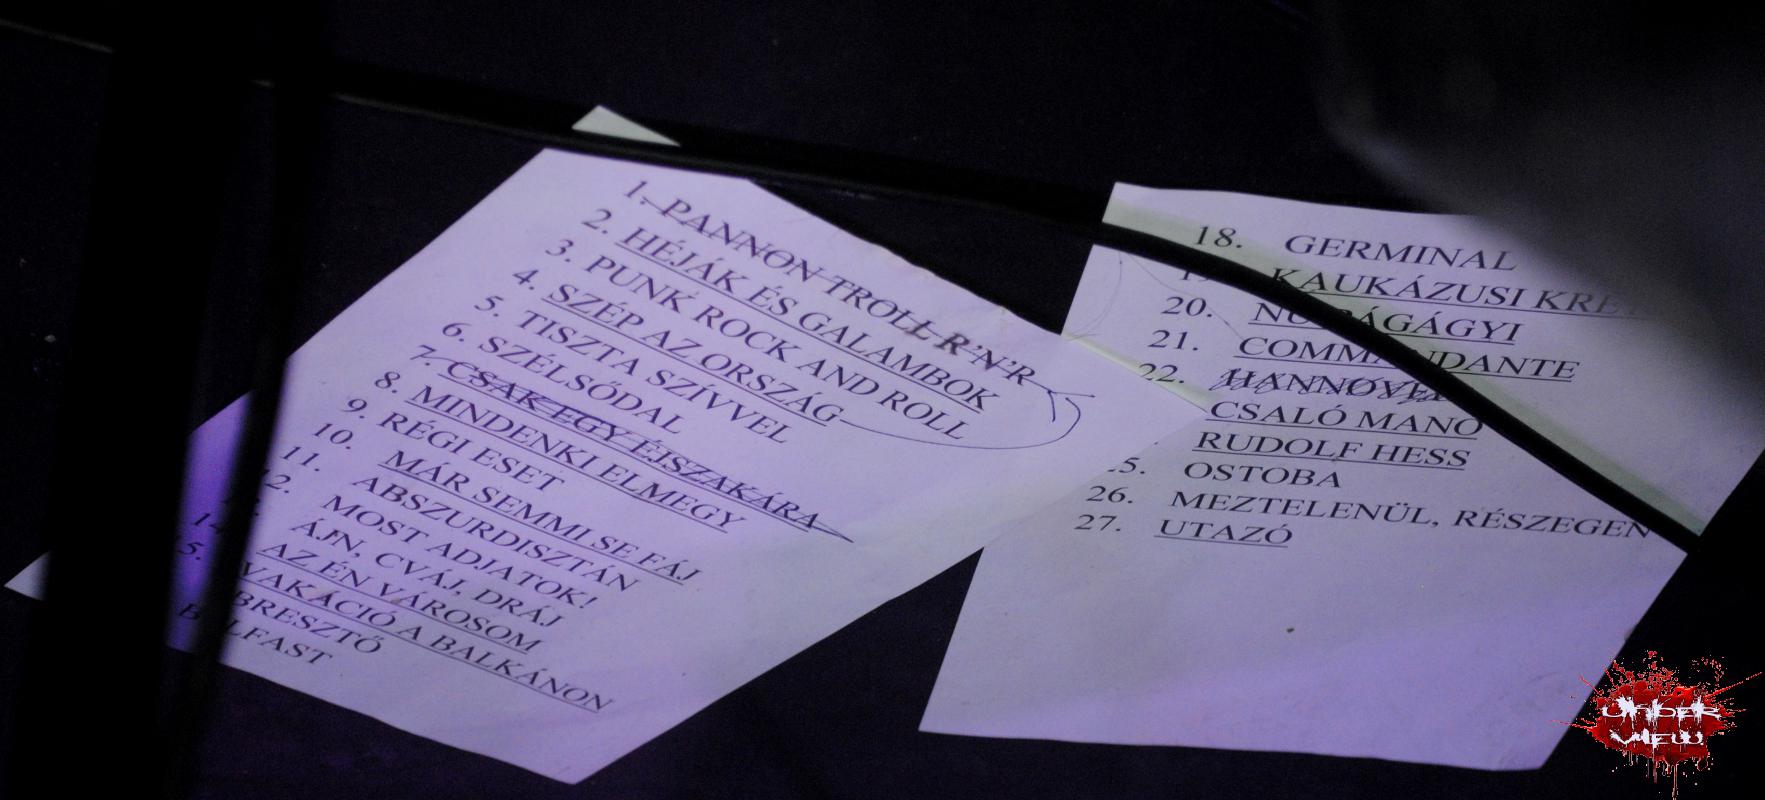 1. PANNON TROLL R'N'R
2. HÉJÁK ÉS GALAMBOK
3. PUNK ROCK AND ROLL
4. SZÉP AZ ORSZÁG
5. TISZTA SZÍVVEL
6. SZÉLSŐDAL
7. CSAK EGY ÉJSZAKÁRA
8. MINDENKI ELMEGY
9. RÉGI ESET
10. MÁR SEMMI SE FÁJ
11. ABSZURDISZTÁN
MOST ADJATOK!
ÁJN, CVÁJ, DRÁJ
AZ ÉN VÁROSOM
VAKÁCIÓ A BALKÁNON
BRESZTŐ
18. GERMINAL
KAUKÁZUSI
20.
21.
22. HANNOVER
CSALÓ MANÓ
RUDOLF HESS
OSTOBA
26. MEZTELENÜL, RÉSZEGEN
27. UTAZÓ
UNDER
VIEW